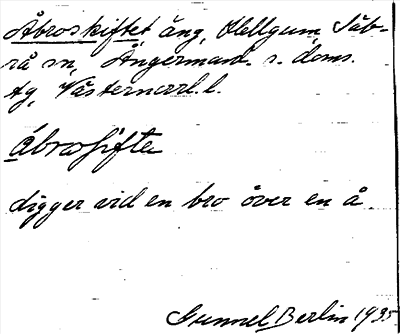 Åbroskiftet äng, Ullgum, Säb-
rå sn, Ångermanl. s. doms.
tg, Västernorrl. l.
ábroʃifte
ligger vid en bro över en å
Gunnel Berlin 1935.